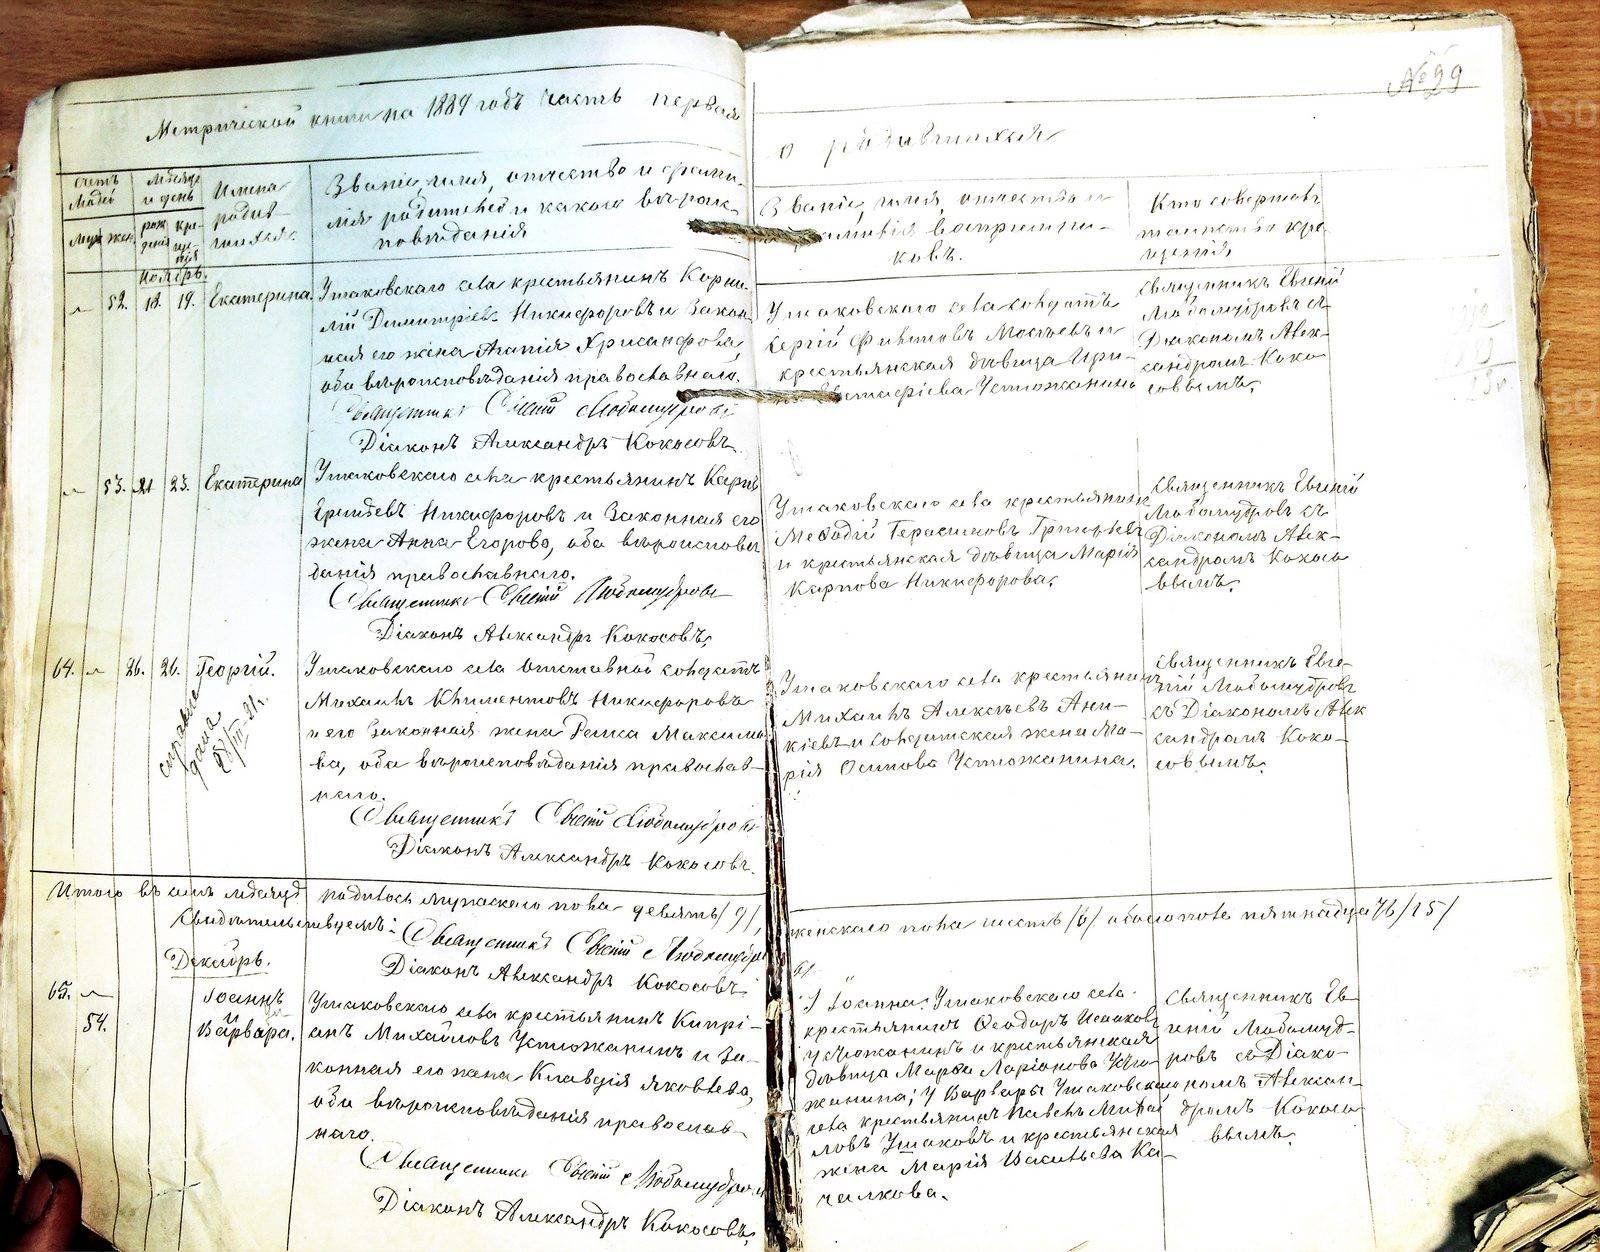 № 99
Метрической книги на 1889 годъ часть первая
о родившихся
Счетъ
Мѣсяцъ
и день
Имена
родив-
шихся.
Званіе, имя, отчество и фами-
лія родителей и какого вѣроис-
повѣданія
муж
жен.
рож
денія
кре-
ще-
нія
Званіе, имя, отчество и
фамилія воспріемни-
ковъ.
Кто совершалъ
таинство кре-
щенія
Ноябрь.
52. 18. 19. Екатерина
Ушаковскаго села крестьянинъ Корни-
лій Димитріевъ Никифоровъ и Закон-
ная его жена Агапія Хрисанфова,
оба вѣроисповѣданія православнаго.
Священникъ Евгеній Любомудровъ
Діаконъ Александръ Кокосовъ.
Ушаковскаго села солдатъ
Сергій Филиповъ Мосѣевъ и
крестьянская дѣвица Ири-
Устюжанина
Священникъ Евгеній
Любомудровъ съ
Діакономъ Алек-
сандромъ Коко-
совымъ.
53. 21 23. Екатерина
Ушаковскаго села крестьянинъ Карпъ
Никифоровъ и Законная его
жена Анна Егорова, оба вѣроисповѣ
данія православнаго.
Священникъ Евгеній Любомудровъ
Діаконъ Александръ Кокосовъ.
Ушаковскаго села крестьянинъ
Меѳодій Герасимовъ Григорьевъ
и крестьянская дѣвица Марія
Карпова Никифорова.
Священникъ Евгеній
Любомудровъ съ
Діакономъ Алек-
сандромъ Кокосо
вымъ.
64. 26. 26. Георгій.
справка
дана
28/III-21г.
Ушаковскаго села отставной солдатъ
Михаилъ Климентовъ Никифоровъ
и его Законная жена Раиса Максимо
ва, оба вѣроисповѣданія православ-
наго.
Священникъ Евгеній Любомудровъ
Діаконъ Александръ Кокосовъ.
Ушаковскаго села крестьянинъ
Михаилъ Алексѣевъ Ани-
кіевъ и солдатская жена Ма-
рія Осипова Устюжанина.
Священникъ Евге-
ній Любомудровъ
съ Діакономъ Алек
сандромъ Коко-
совымъ.
Итого въ семъ мѣсяцѣ родилось мужескаго пола девять /9/,
женскаго пола шесть /6/ обоего пола пятнадцать /15/
Свидѣтельствуемъ: Священникъ Евгеній Любомудровъ
Діаконъ Александръ Кокосовъ
Декабрь.
65.
54.
Іоаннъ
Варвара.
Ушаковскаго села крестьянинъ Кипрі-
анъ Михайловъ Устюжанинъ и За-
конная его жена Клавдія Яковлева,
оба вѣроисповѣданія православ-
наго.
Священникъ Евгеній Любомудровъ
Діаконъ Александръ Кокосовъ.
У Іоанна: Ушаковскаго села
крестьянинъ Ѳеодоръ Исааковъ
Устюжанинъ и крестьянская
дѣвица Марѳа Ларіонова Устю-
жанина; У Варвары Ушаковскаго
села крестьянинъ Павелъ Михай
ловъ Ушаковъ и крестьянская
жена Марія Васильева Ка-
чалкова.
Священникъ Ев-
геній Любомуд-
ровъ съ Діако-
номъ Алексан-
дромъ Кокосо
вымъ.